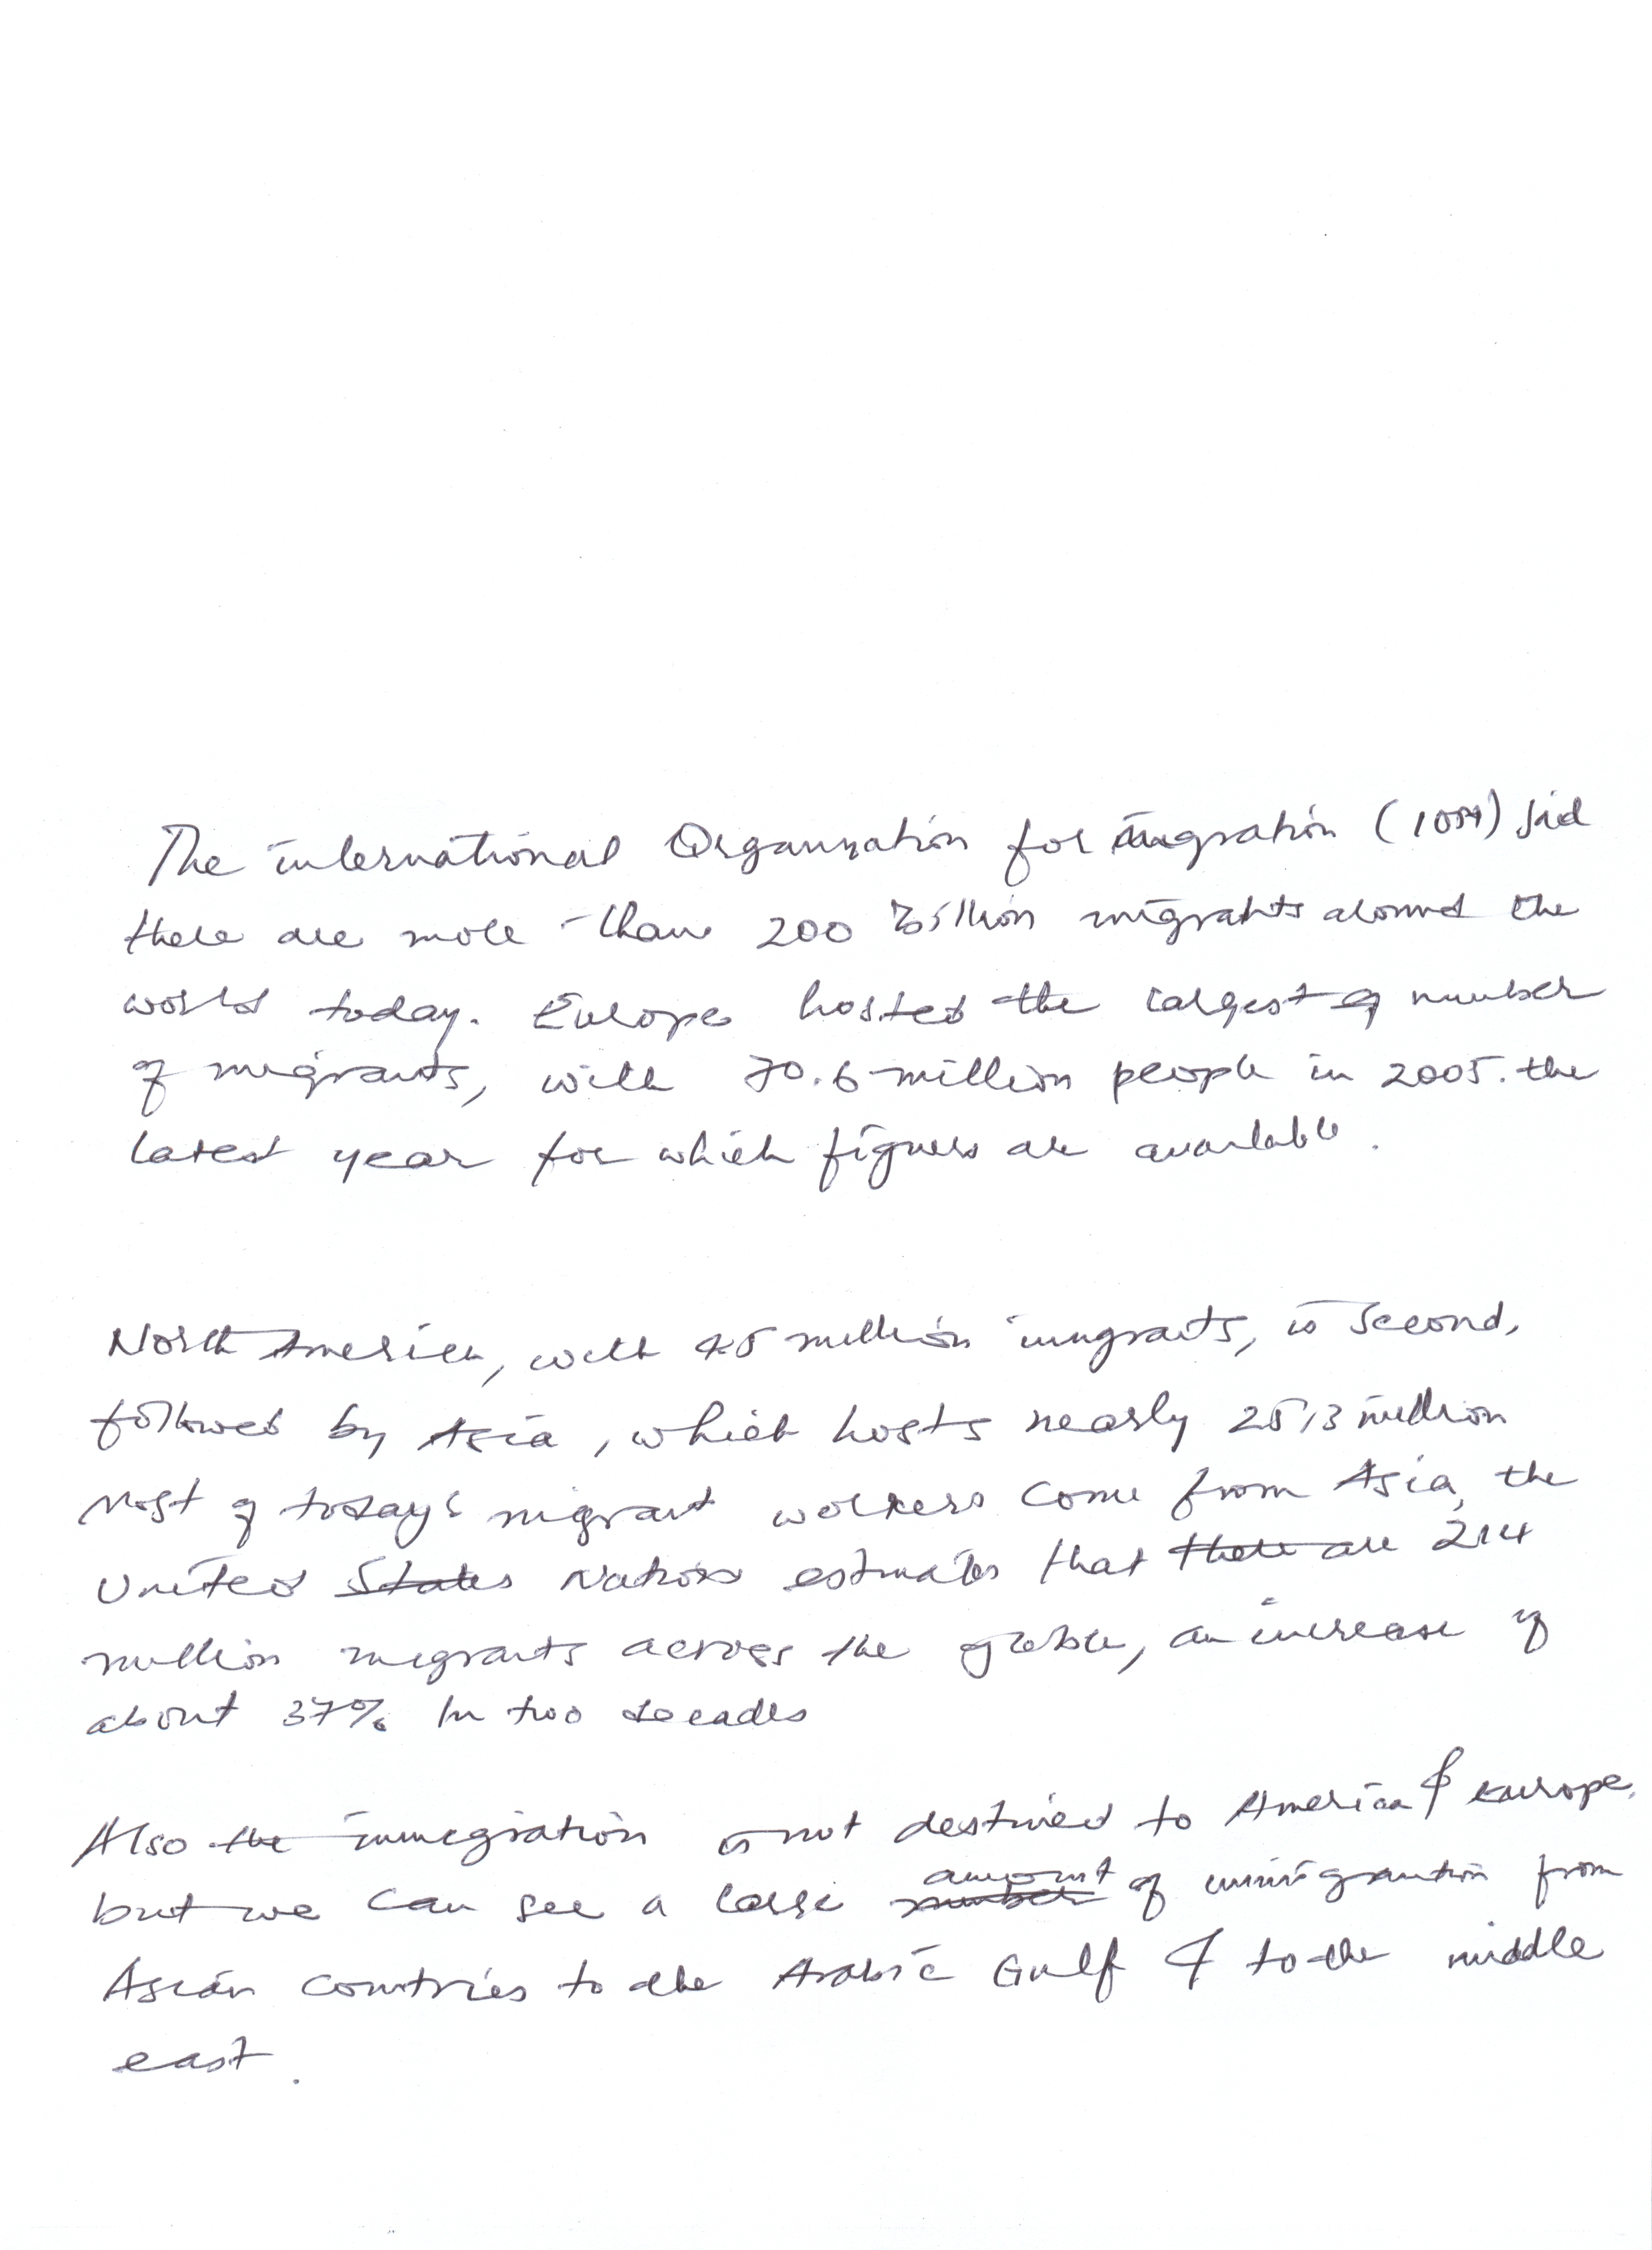 The international Organization for migration (IOM) sid
there are more than 200 Billion migrants around the
world today. Europe hosted the largest of number
of migrants, with 70.6 million people in 2005. the
latest year for which figures are available.
North America, with 45 million imigrants, is Second,
followed by Asia, which hosts nearly 25,3 million
Most of today's migrant workers come from Asia, the
United States Nations estimates that there are 214
million migrants across the globe, an increase of
about 37% In two decades
Also the immigration is not destined to America & europe.
but we can see a large number amount of immigrantion from
Asian countries to the Arabic Gulf & to the middle
east.